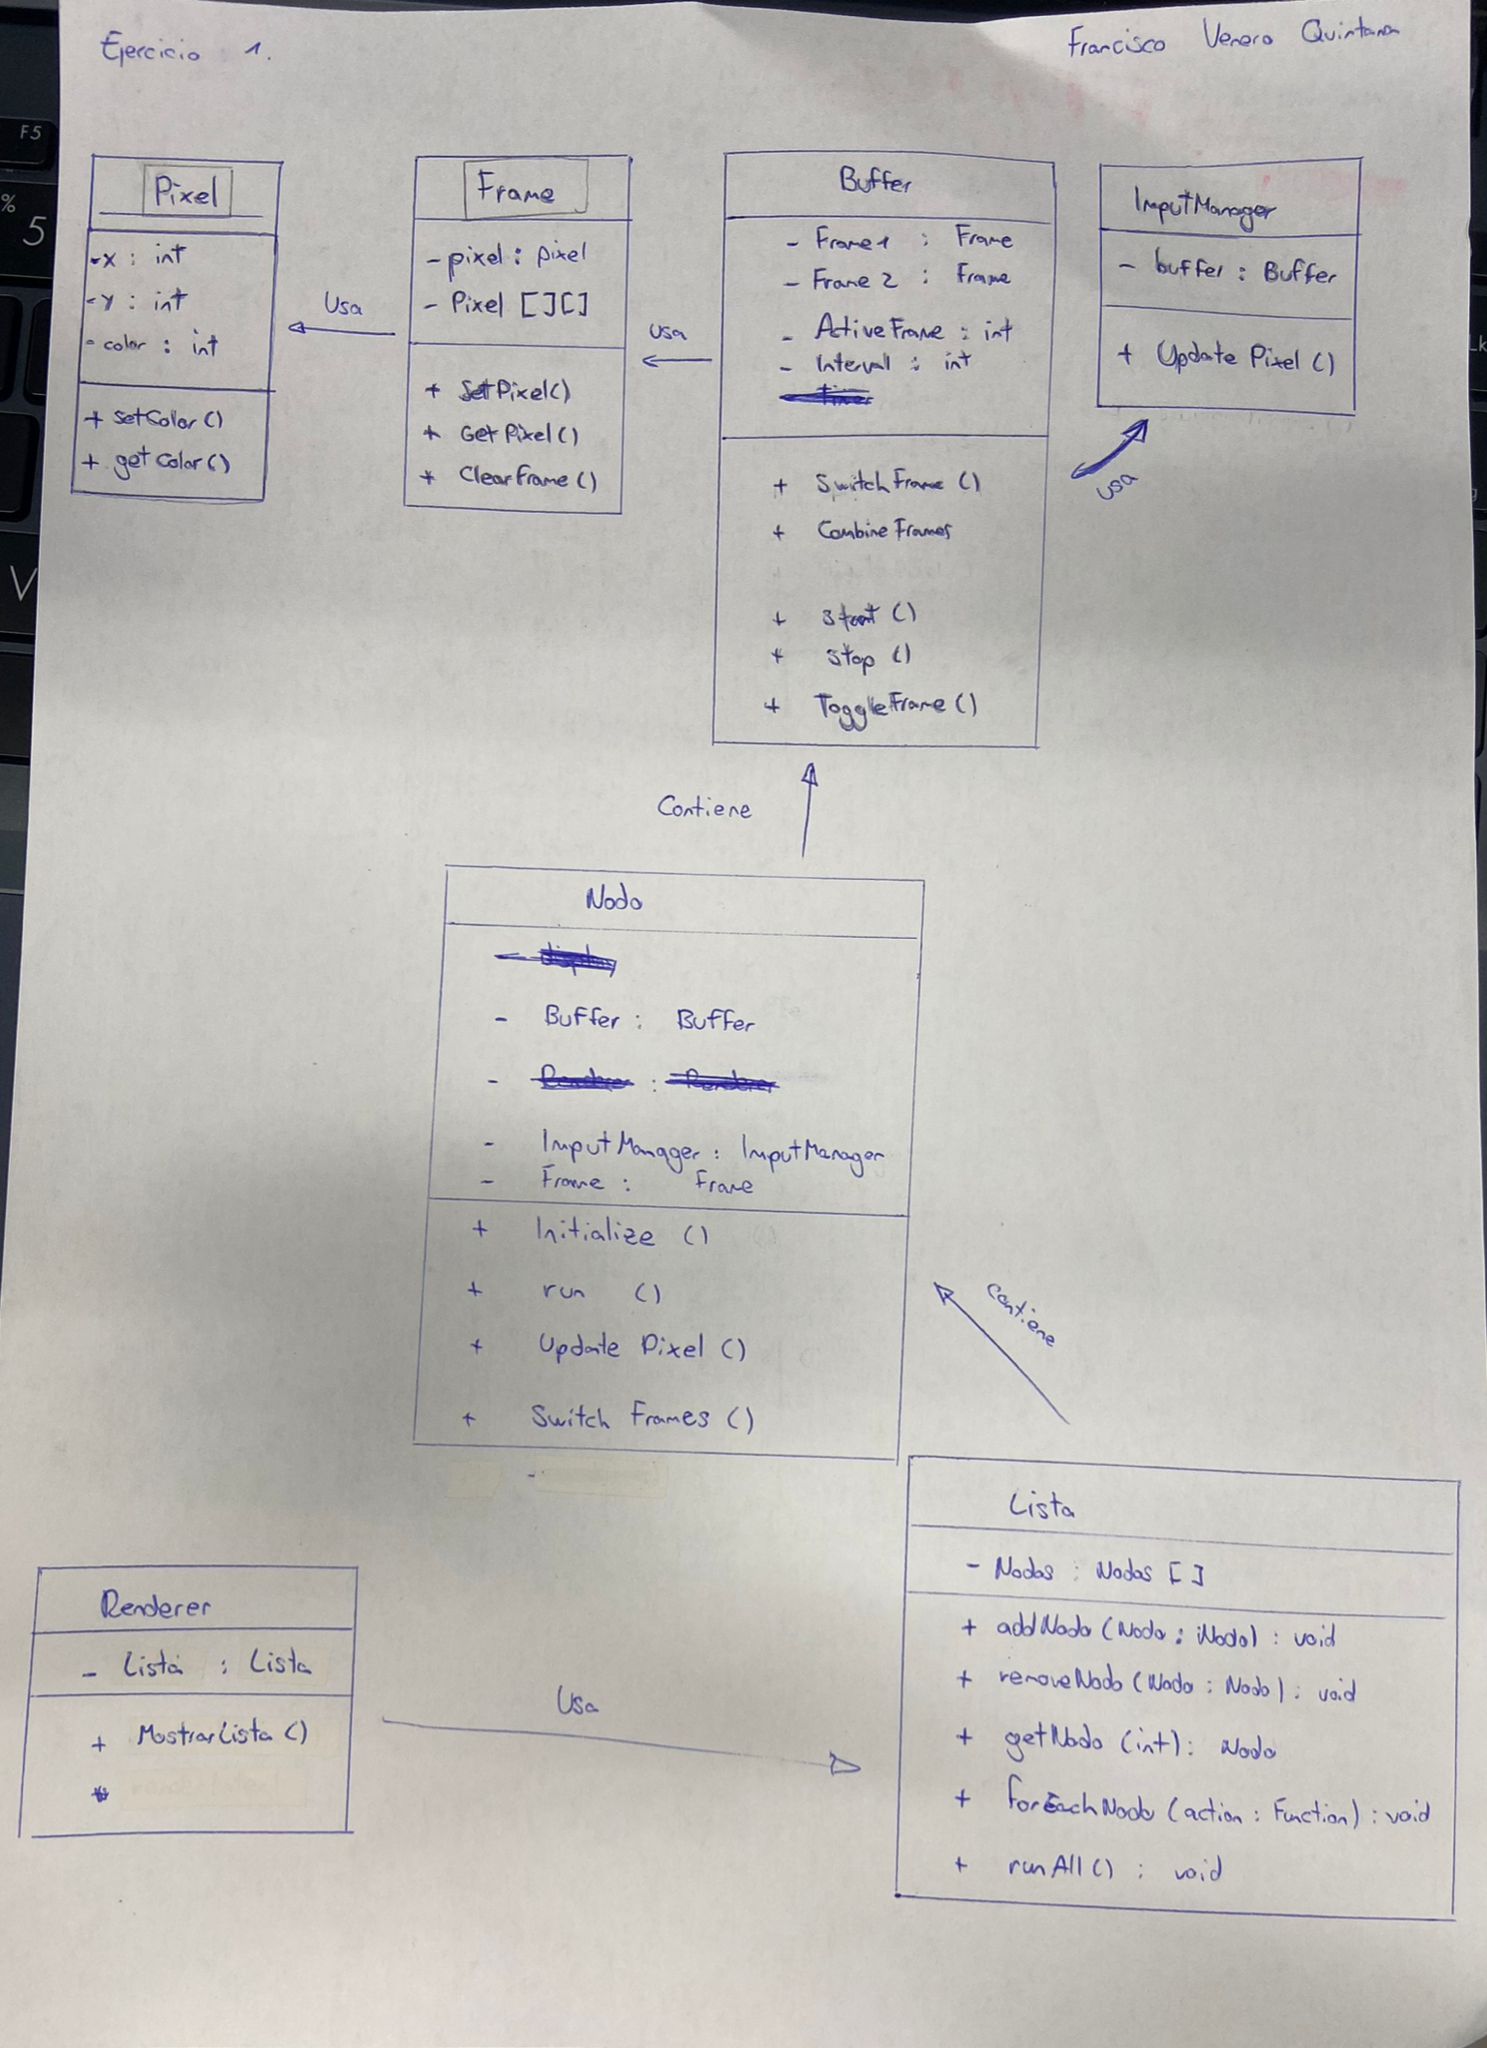 Ejercicio 1.
Francisco Venero Quintana
Pixel
- x : int
- y : int
- color : int
+ setColor ()
+ getColor ()
Usa
Frame
- pixel : pixel
- Pixel [][]
+ SetPixel()
+ GetPixel()
+ ClearFrame ()
Usa
Buffer
- Frame1 : Frame
- Frame 2 : Frame
- Active Frame : int
- Interval : int
+ Switch Frame ()
+ Combine Frames
+ start ()
+ stop ()
+ Toggle Frame ()
InputManager
- buffer : Buffer
+ Update Pixel ()
Usa
Contiene
Nodo
- Buffer : Buffer
- InputManager : InputManager
- Frame : Frame
+ Initialize ()
+ run ()
+ Update Pixel ()
+ Switch Frames ()
Contiene
Lista
- Nodos : Nodos []
+ addNodo (Nodo : Nodo) : void
+ removeNodo (Nodo : Nodo) : void
+ getNodo (int) : Nodo
+ forEachNodo (action : Function) : void
+ runAll () : void
Renderer
- Lista : Lista
+ MostrarLista ()
Usa
F5
%
5
V